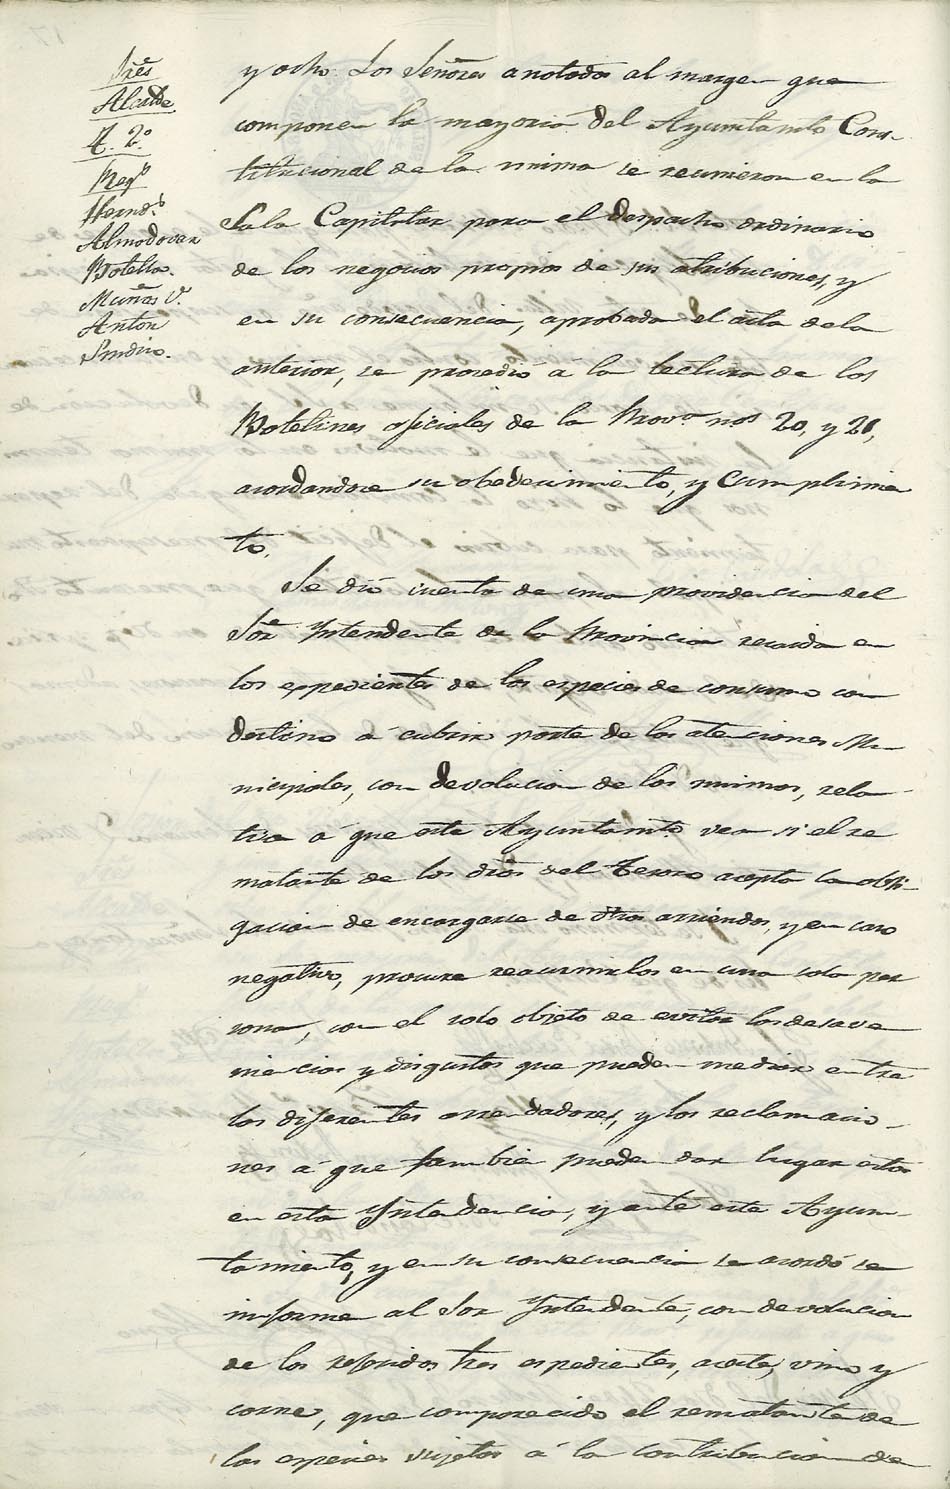 Sres
Alcalde
T. 2.º
Reg.s
Hernd.s
Almodovar
Botella.
Muñoz V.
Anton
Sindico.
y ocho. Los Señores anotados al margen que
componen la mayoria del Ayuntamto Cons-
titucional de la misma se reunieron en la
Sala Capitular para el despacho ordinario
de los negocios propios de sus atribuciones, y
en su consecuencia, aprobada el acta de la
anterior, se prosedió á la lectura de los
Botelines oficiales de la Prov.a nos 20, y 21,
acordandose su obedecimiento, y cumplimien
to.
Se dió cuenta de una providencia del
Sor Intendente de la Provincia recaida en
los espedientes de las especies de consumo con
destino á cubrir parte de las atenciones Mu
nicipales, con devolucion de los mismos, rela
tiva á que este Ayuntamto vea si el re
matante de los dros del Tesoro acepta la obli-
gacion de encargarse de otros arriendos, y en caso
negativo, procure reasumirlos en una sola per
sona, con el solo objeto de evitar las desave
niencias y disgustos que puedan mediar entre
los diferentes arrendadores, y las reclamacio-
nes á que tambien pueden dar lugar estos
en esta Yntendencia, y ante este Ayun-
tamiento, y en su consecuencia se acordó se
informe al Sor Yntendente, con devolucion
de los referidos tres espedientes, aceite, vino y
carne, que comparecido el rematante de
las especies sujetas á la contribucion de